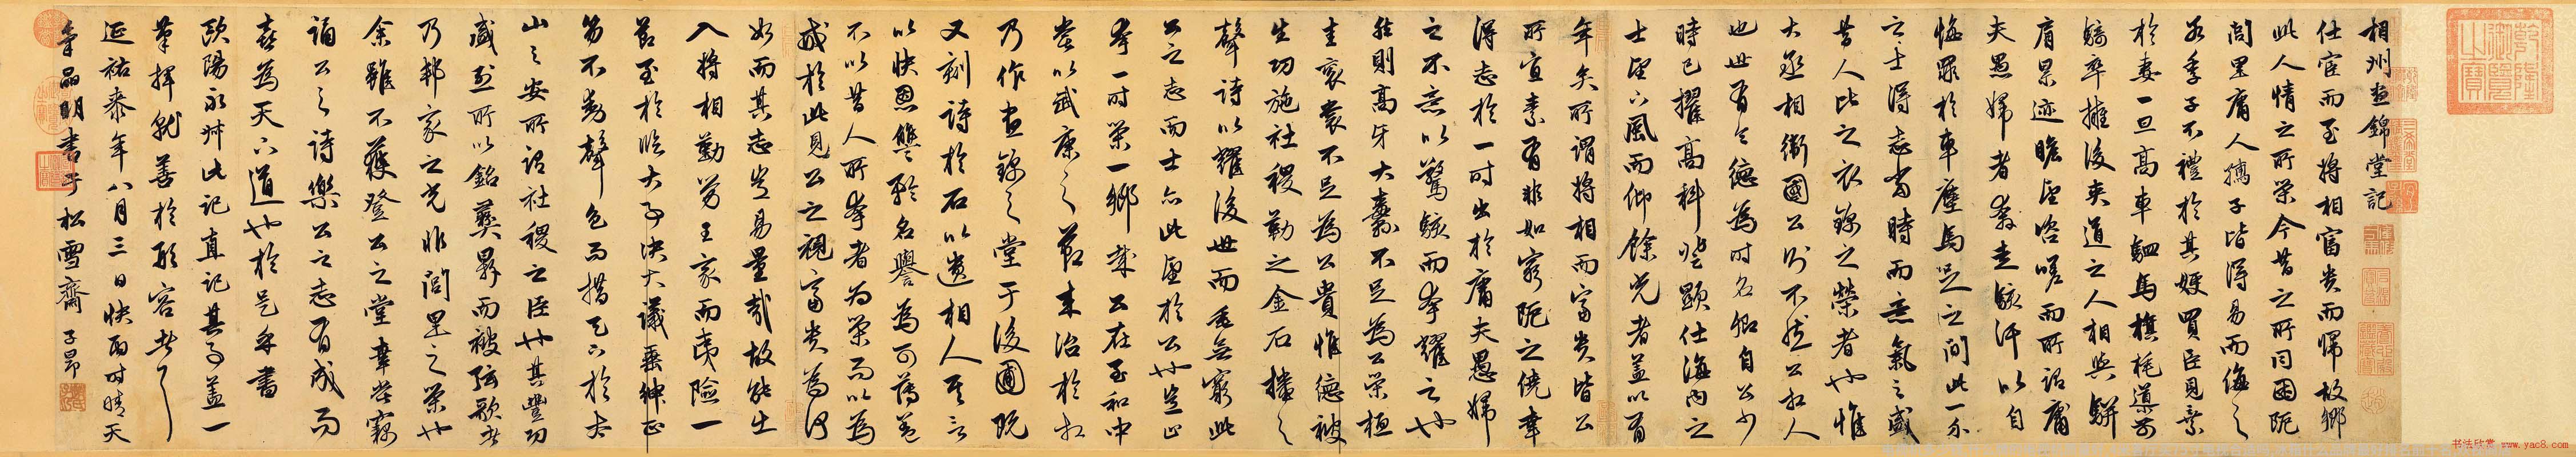 相州晝錦堂記
仕宦而至將相富貴而歸故鄉
此人情之所榮今昔之所同困阨
閭里庸人孺子皆得易而侮之
若季子不禮於其嫂買臣見棄
於妻一旦高車駟馬旗旄導前
騎卒擁後夾道之人相與駢
肩累迹瞻望咨嗟而所謂庸
夫愚婦者奔走駭汗以自
悔罪於車塵馬足之間此一介
之士得志當時而意氣之盛
昔人比之衣錦之榮者也惟
大丞相衛國公則不然公相人
也世有令德為時名卿自公少
時已擢高科登顯仕海內之
士望下風而仰餘光者蓋以有
年矣所謂將相而富貴皆公
所宜素有非如窮阨之僥幸
得志於一時出於庸夫愚婦
之不意以驚駭而夸耀之也
然則高牙大纛不足為公榮桓
圭袞裳不足為公貴惟德被
生功施社稷勒之金石播之
聲詩以耀後世而垂無窮此
公之志而士亦此望於公也豈止
夸一時榮一鄉哉公在至和中
嘗以武康之節來治於相
乃作晝錦之堂于後圃既
又刻詩於石以遺相人其言
以快恩讎矜名譽為可薄蓋
不以昔人所夸者為榮而以為
戒於此見公之視富貴為何
如而其志豈易量哉故能出
入將相勤勞王家而夷險一
節至於臨大事決大議垂紳正
笏不動聲色而措天下於泰
山之安所謂社稷之臣也其豐功
盛烈所以銘彝鼎而被弦歌者
乃邦家之光非閭里之榮也
余雖不獲登公之堂幸嘗竊
誦公之詩樂公之志有成而
喜為天下道也於是乎書
歐陽永叔此記直記其事蓋一
筆揮就善於形容者
延祐泰年八月三日快雨時晴天
氣品明書于松雪齋 子昂
乾隆御覽之寶
书法欣赏 www.yac8.com